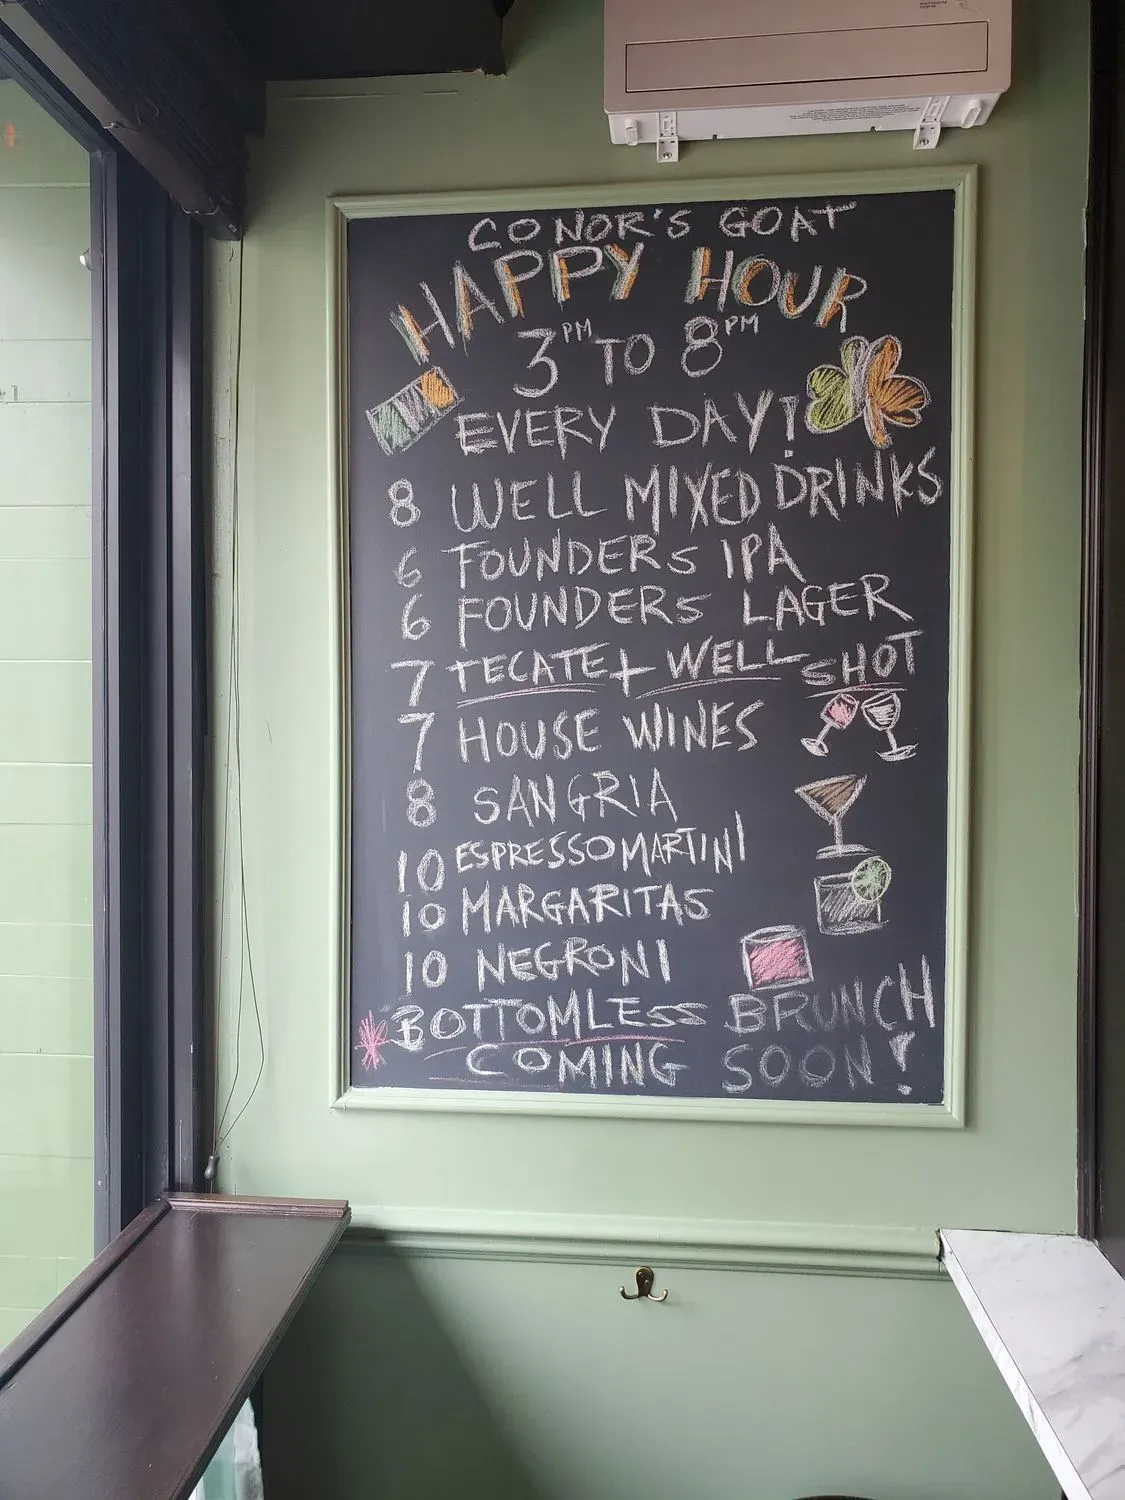 CONOR'S GOAT
HAPPY HOUR
3PM TO 8PM
EVERY DAY!
8 WELL MIXED DRINKS
6 FOUNDERS IPA
6 FOUNDERS LAGER
7 TECATE + WELL SHOT
7 HOUSE WINES
8 SANGRIA
10 ESPRESSO MARTINI
10 MARGARITAS
10 NEGRONI
BOTTOMLESS BRUNCH
COMING SOON!